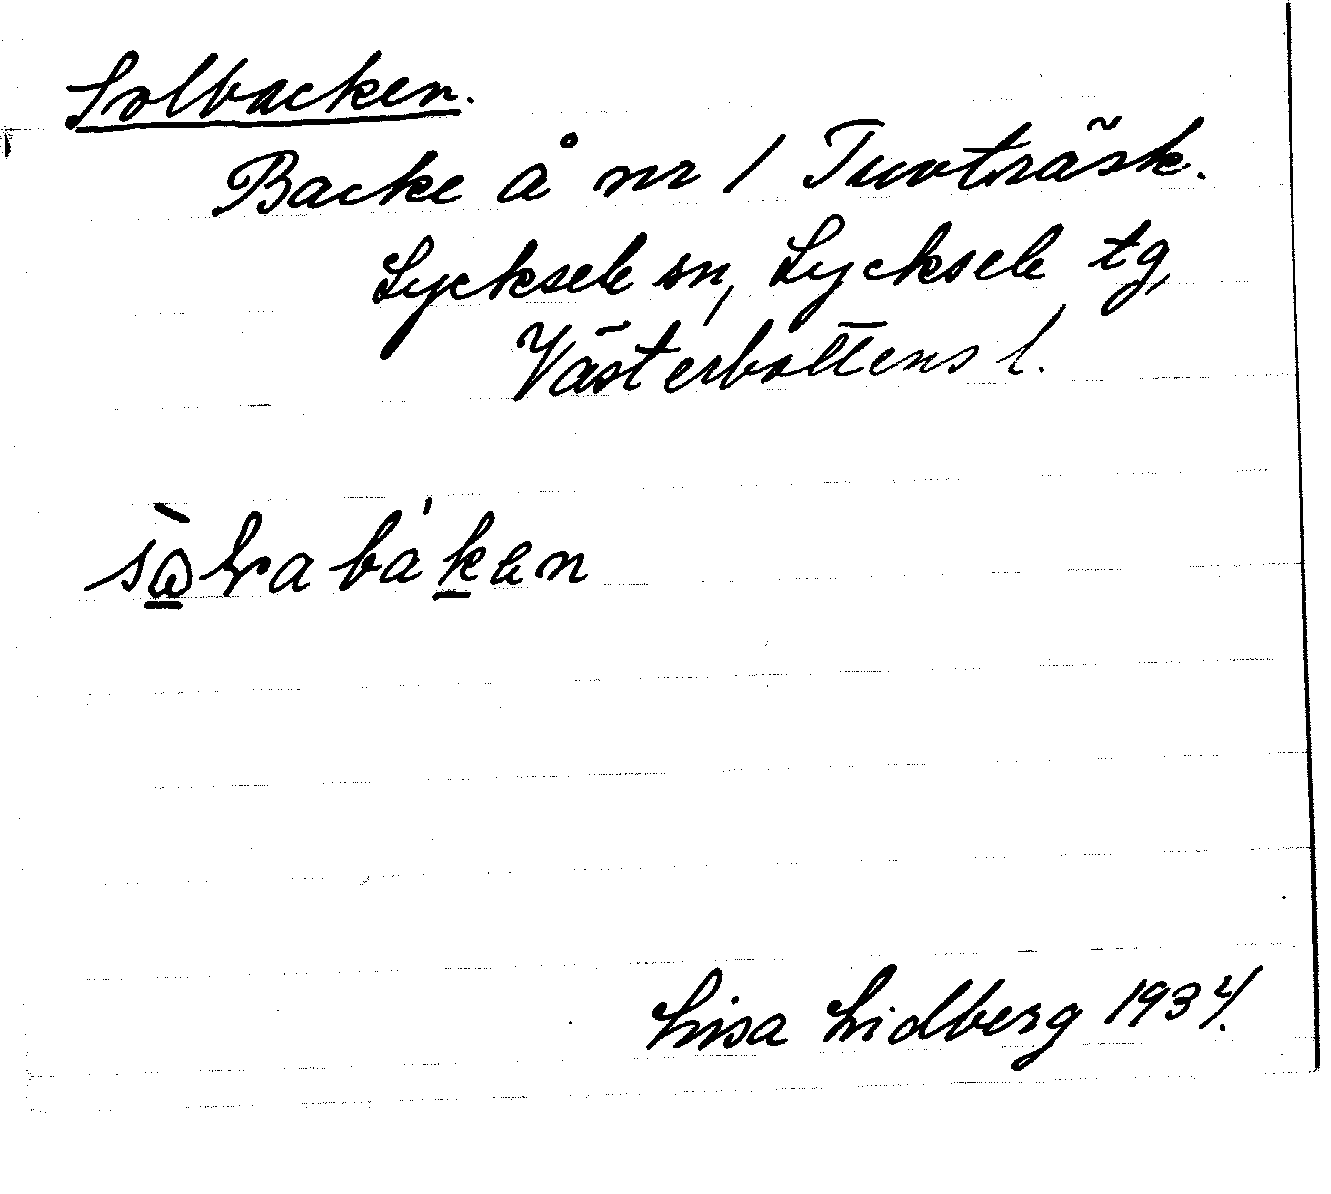 Solbacken.
Backe å nr 1 Tuvträsk.
Lycksele sn, Lycksele tg,
Västerbottens l.
Lisa Lidberg 1934.